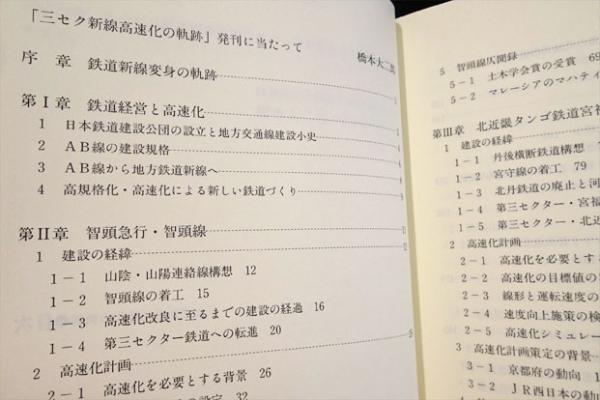 「三セク新線高速化の軌跡」発刊に当たって
橋本大二郎
序 章 鉄道新線変身の軌跡 1
第Ⅰ章 鉄道経営と高速化
1 日本鉄道建設公団の設立と地方交通線建設小史
2 AB線の建設規格
3 AB線から地方鉄道新線へ
4 高規格化・高速化による新しい鉄道づくり
第Ⅱ章 智頭急行・智頭線 11
1 建設の経緯 11
1-1 山陰・山陽連絡線構想 12
1-2 智頭線の着工 15
1-3 高速化改良に至るまでの建設の経過 16
1-4 第三セクター鉄道への転進 20
2 高速化計画
2-1 高速化を必要とする背景 26
の設定 32
5 智頭線仄聞録
5-1 土木学会賞の受賞 69
5-2 マレーシアのマハティ
第Ⅲ章 北近畿タンゴ鉄道宮福
1 建設の経緯
1-1 丹後横断鉄道構想
1-2 宮守線の着工 79
1-3 北丹鉄道の廃止と河
1-4 第三セクター・宮福
1-5 第三セクター・北近
2 高速化計画
2-1 高速化を必要とする
2-2 高速化の目標値の
2-3 線形と運転速度の
2-4 速度向上施策の検
2-5 高速化シミュレー
3 高速化計画策定の背景
3-1 京都府の動向
3-2 JR西日本の動